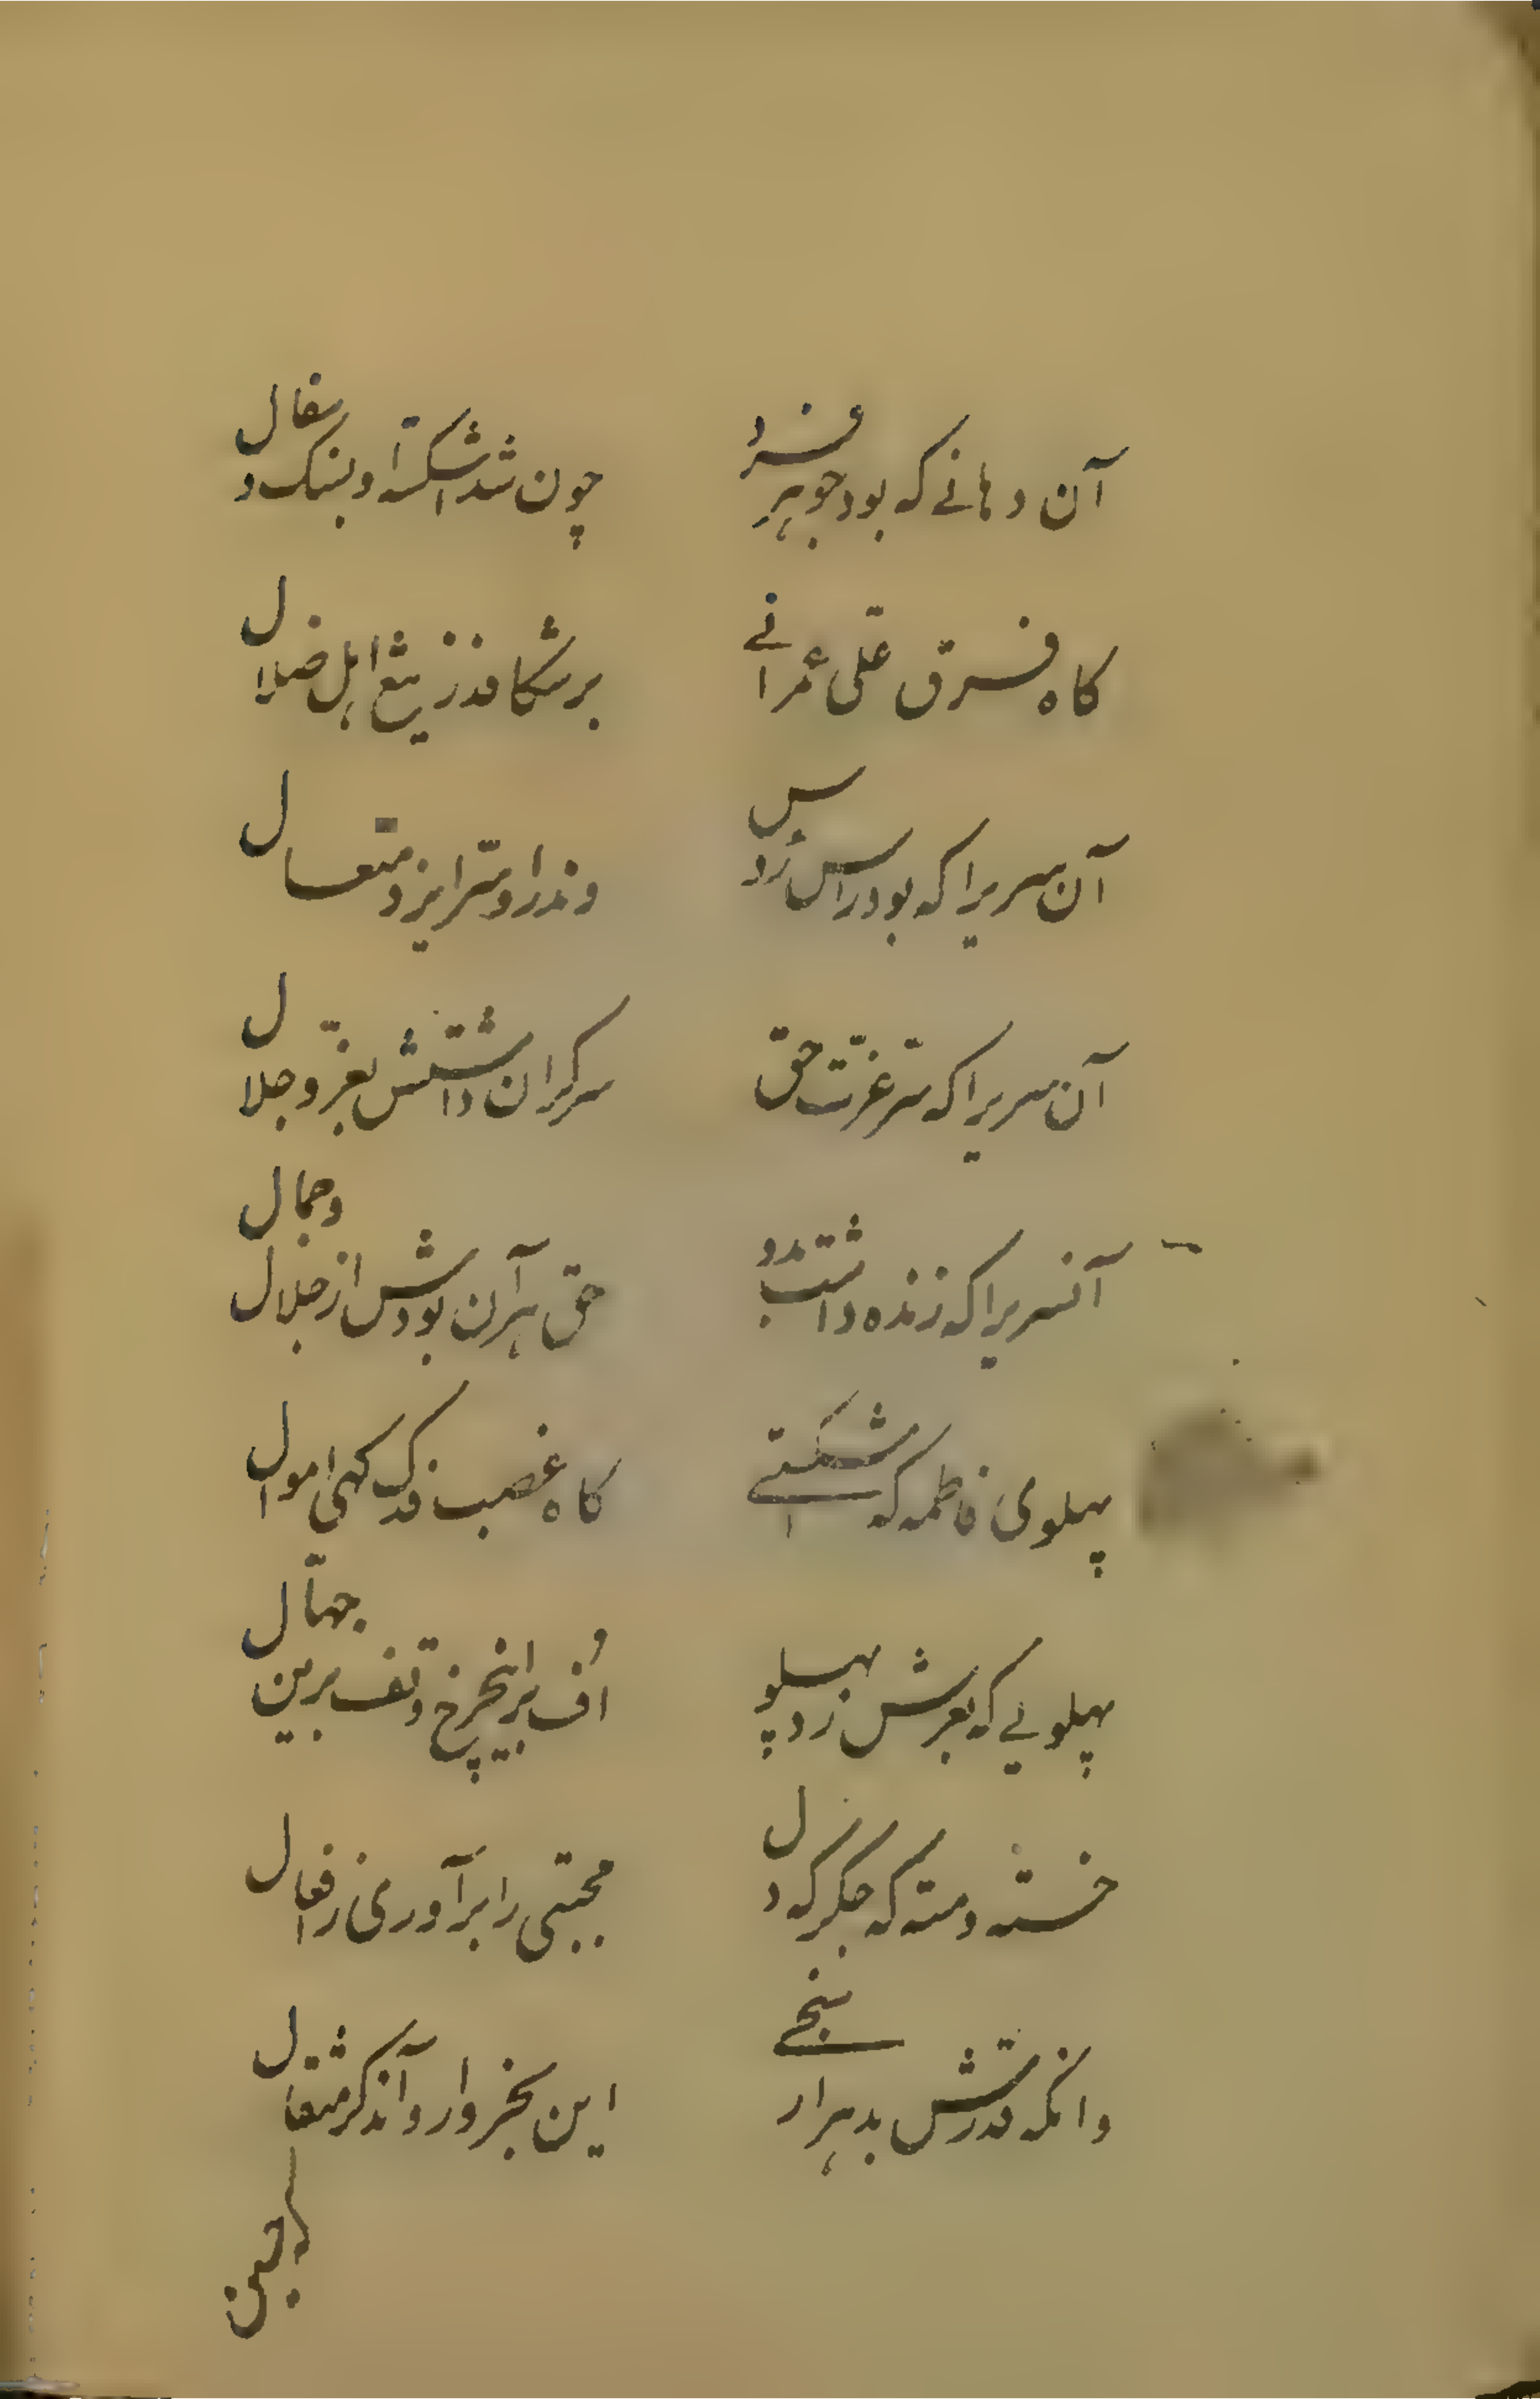 آن دهانے که بود جوهر فرد
چون شد اشکسته و بسنک و سفال
کاه فرق علی عمرانے
برشکافد ز تیغ اهل ضلال
آن سریرا که بود راس رؤس
وندرا و سرّ ایزد متعال
آن سریرا که سرّ عزّت حق
سرکران داشتش بعزّ و جلال
آنسریرا که زنده داشت بدو
حق هرآن بودش از جلال و جمال
پهلوی فاطمه که اشکستے
کاه غصب فدک کهی اموال
پهلویے که بعرش زد پهلو
اُف براینچرخ و تف برین جهّال
خسته دسته که جکر که دل
مجتبی را برآوری ز افعال
وانکه قدرتش بدهرار سنجے
این بخروار و آندکر مثقال